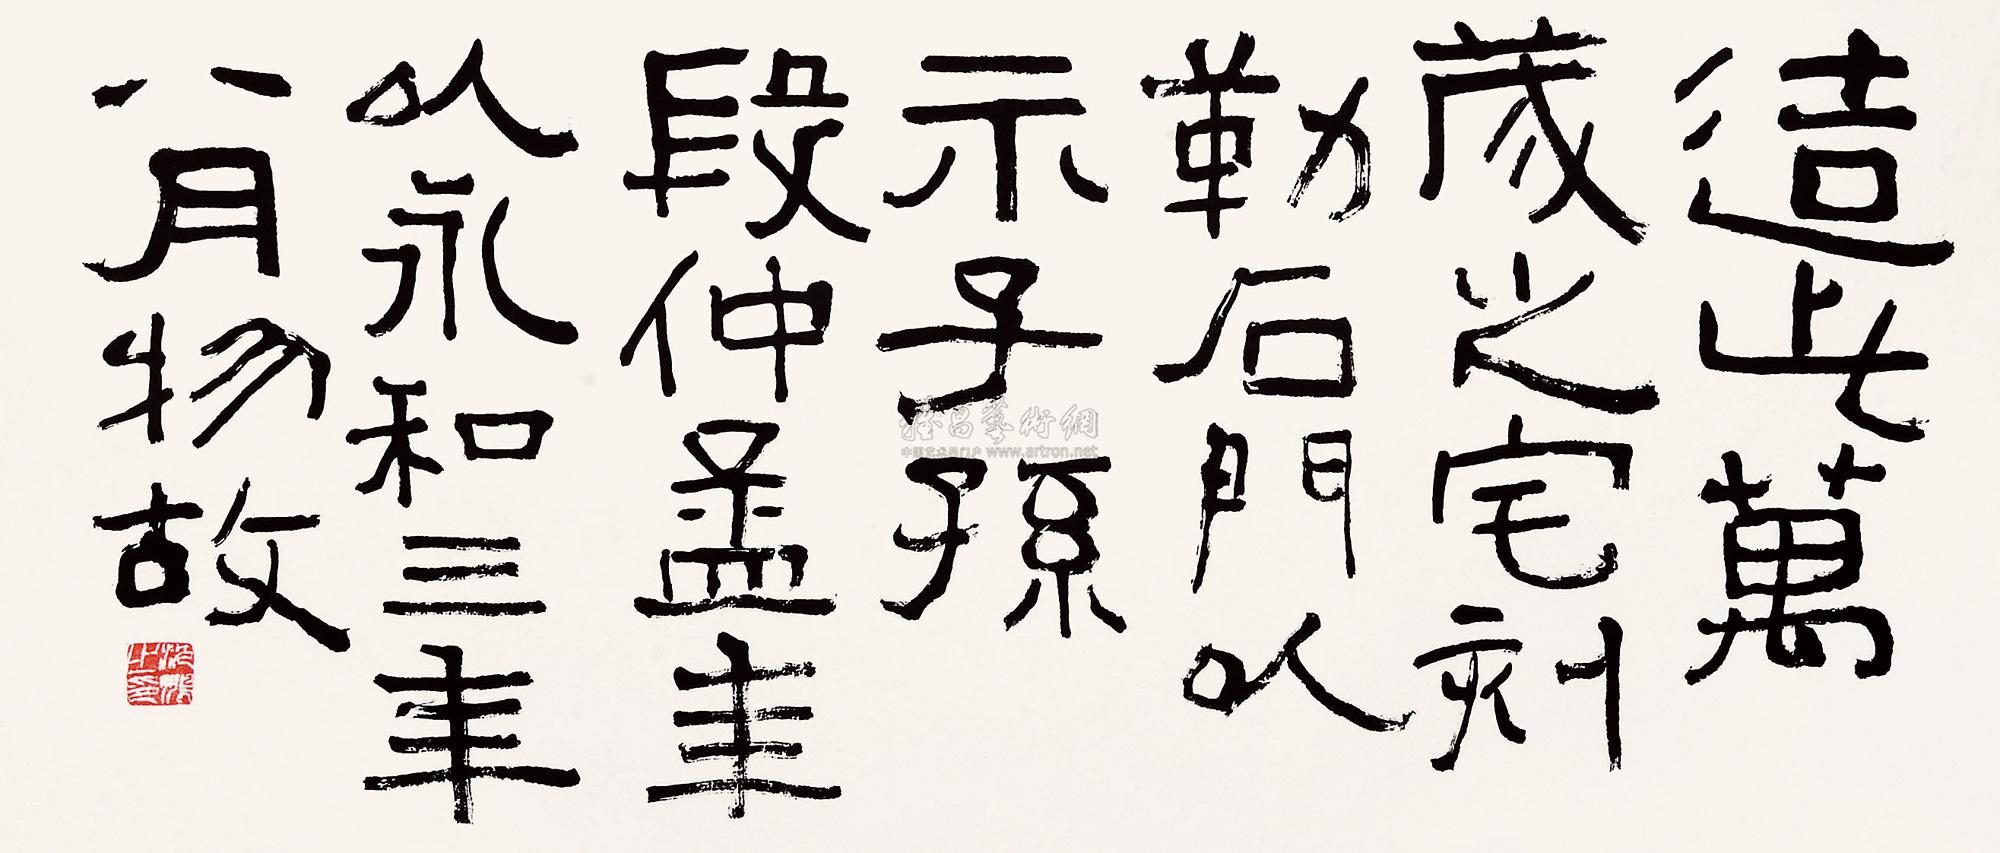 造此萬
歲之宅刻
勒石門以
示子孫
段仲孟年
以永和三年
八月物故
雅昌藝術網
中国艺术品门户 www.artron.net